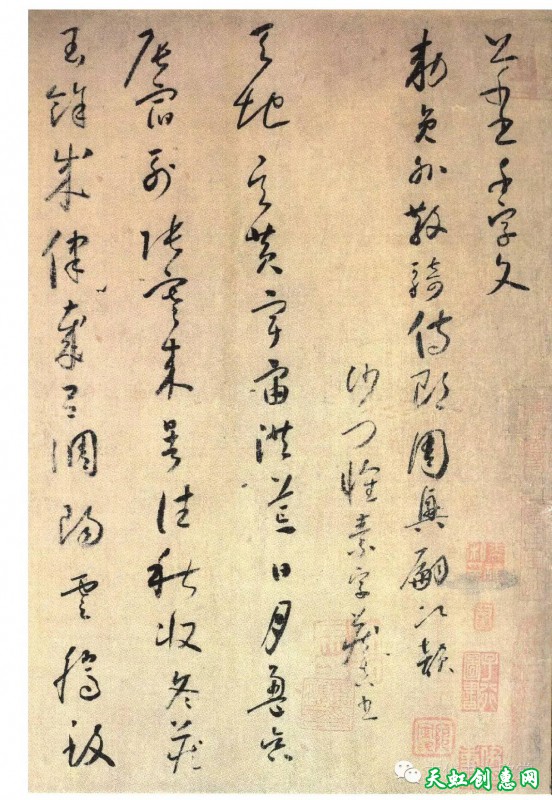 千字文
勅員外散騎侍郎周興嗣次韻
沙門懷素字藏真書
天地玄黃宇宙洪荒日月盈昃
辰宿列張寒來暑往秋收冬藏
閏餘成律歲呂調陽雲騰致
天虹创惠网